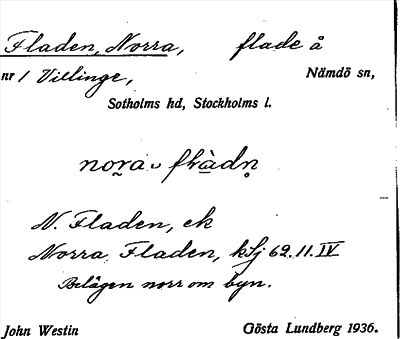 Fladen, Norra, flade å
nr 1 Villinge, Nämdö sn,
Sotholms hd, Stockholms l.
nora fladn
N. Fladen, ek
Norra Fladen, kSj 62.11.IV
Belägen norr om byn.
John Westin Gösta Lundberg 1936.